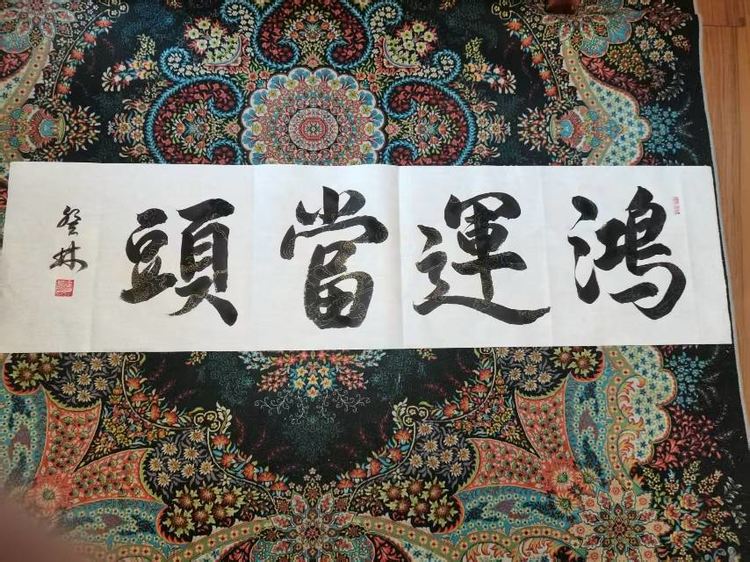 鴻運當頭
登林